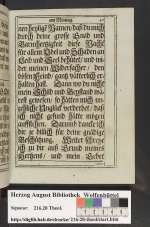 am Montag.
nen heylige Namen/daß du mich
durch deine grosse Huld und
Barmhertzigkeit diese Nacht
für allem Übel und Schaden an
Leib und Seel behütet/ und wi-
der meinen Widersacher/ den
bösen Feind/ gantz väterlich er-
halten hast. Dann wo du nicht
mein Schild und Beystand wä-
rest gewesen/ so hätten mich un-
zehliche Unglück verderbet/ daß
ich nicht gesund hätte mögen
auffstehen. Darumb dancke ich
dir je billich für deine gnädige
Beschützung. Weiter schreye
ich zu dir auß Grund meines
Hertzens/ und mein Gebet
Herzog August Bibliothek Wolfenbüttel
Signatur: 216.20 Theol.
http://diglib.hab.de/drucke/216-20-theol/start.htm